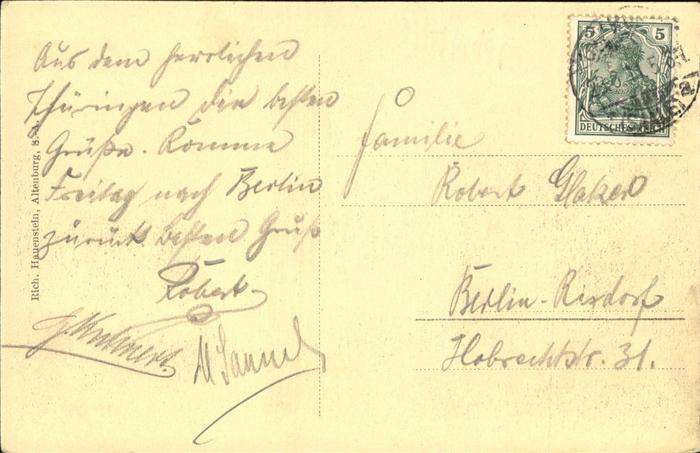 Aus dem herrlichen
Thüringen die besten
Grüße. Komme
Freitag nach Berlin
zurück. Besten Gruß
Robert
M
Rich. Hauenstein, Altenburg, S.-A.
5 5
DEUTSCHES REICH
Familie
Robert Glatzer
Berlin-Rixdorf
Hobrechtstr. 31.